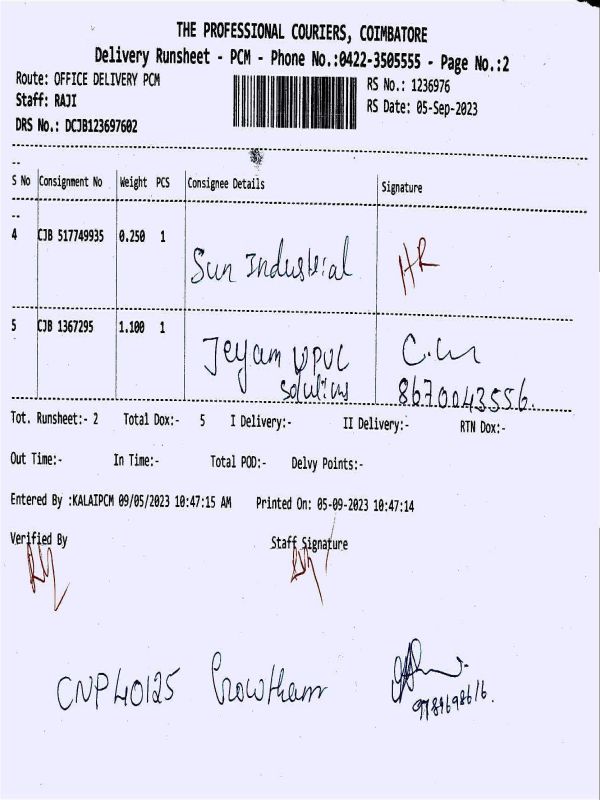 THE PROFESSIONAL COURIERS, COIMBATORE
Delivery Runsheet - PCM - Phone No.:0422-3505555 - Page No.:2
Route: OFFICE DELIVERY PCM RS No.: 1236976
Staff: RAJI RS Date: 05-Sep-2023
DRS No.: DCJB123697602
--
S No Consignment No Weight PCS Consignee Details Signature
--
4 CJB 517749935 0.250 1 Sun Industrial HR
5 CJB 1367295 1.100 1 Jeyam UPVC
solutions 8670043556.
Tot. Runsheet:- 2 Total Dox:- 5 I Delivery:- II Delivery:- RTN Dox:-
Out Time:- In Time:- Total POD:- Delvy Points:-
Entered By :KALAIPCM 09/05/2023 10:47:15 AM Printed On: 05-09-2023 10:47:14
Verified By Staff Signature
CNP40125 Gowtham